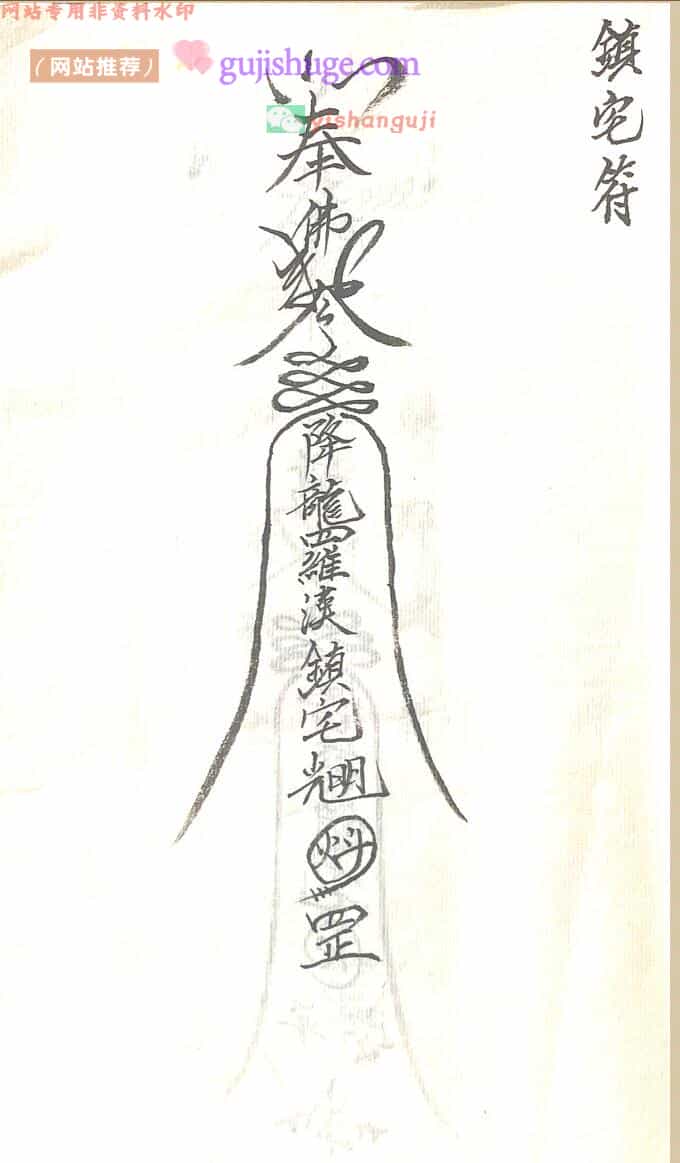 网站专用非资料水印
(网站推荐) gujishuge.com
yishanguji
鎮宅符
奉
佛
令
降龍羅漢鎮宅光明
罡